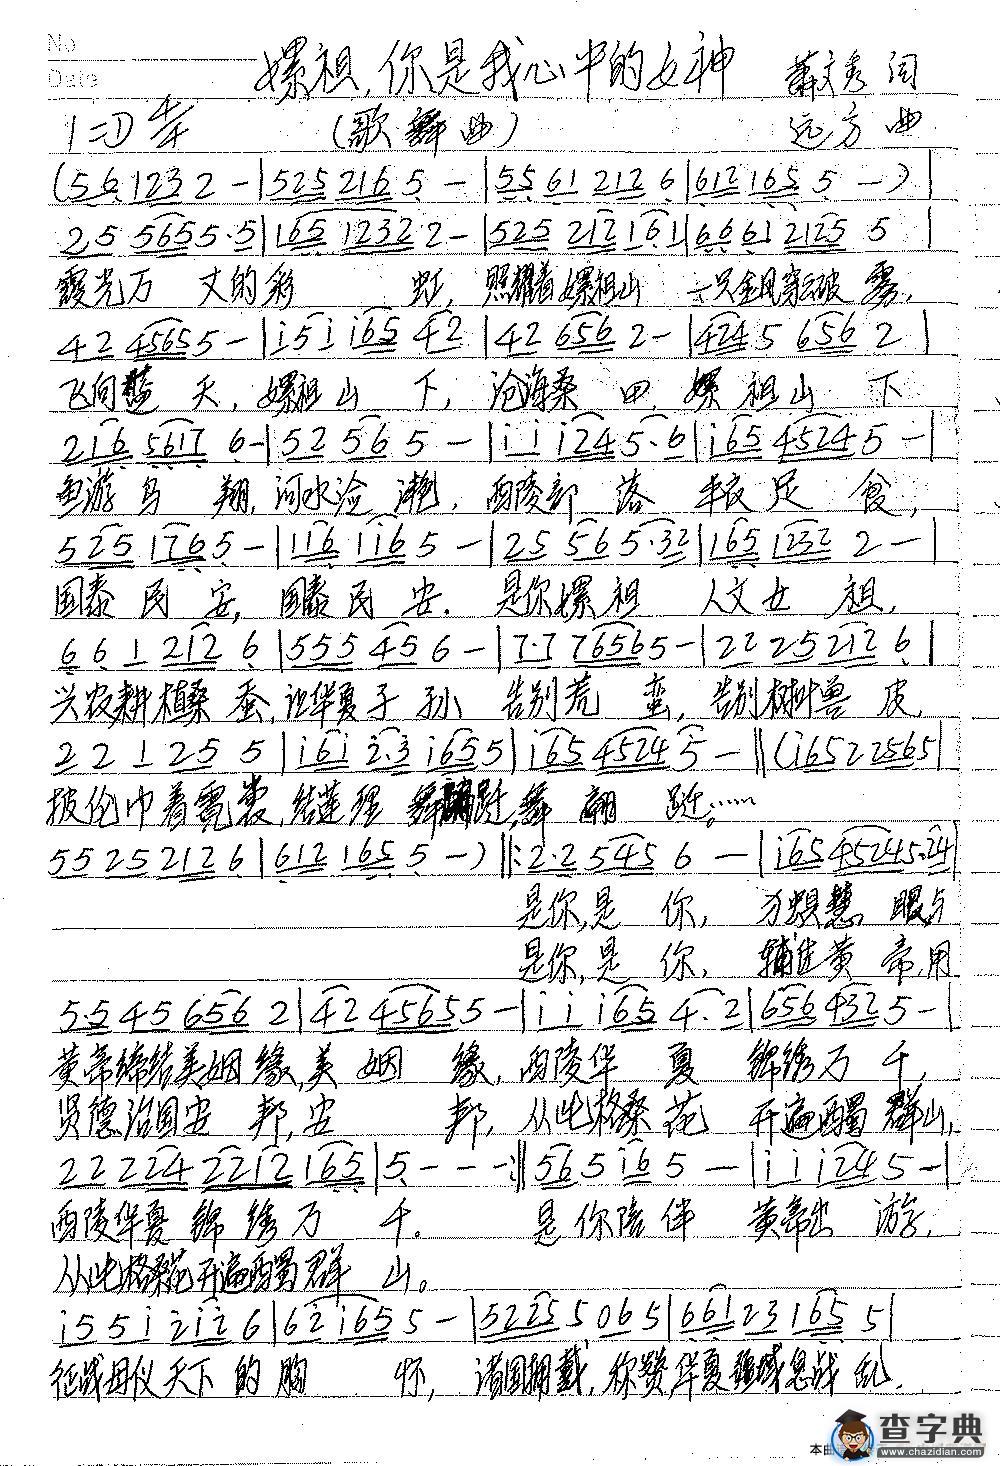 No
Date
嫘祖,你是我心中的女神 萧文秀 词
1=D 4/4 (歌舞曲) 远方 曲
(56 1232 2 - | 525 2165 - | 55 61 212 6 | 612 165 5 -) |
25 5655·5 | 165 12322 - | 525 212 161 | 6661 2125 5 |
霞光万 丈的彩 虹, 照耀着嫘祖山 一只金凤穿破 雾,
42 45655 - | i5i i65 42 | 42 656 2 - | 4245 656 2 |
飞向蓝 天, 嫘祖山 下, 沧海桑 田, 嫘 祖山 下
216 5617 6 - | 52 56 5 - | i i i245·6 | i65 45245 - |
鱼游鸟 翔, 河水沧 滟, 西陵部 落 丰衣足 食,
525 1765 - | 116 116 5 - | 25 565·32 | 165 1232 2 - |
国泰民 安, 国泰民 安. 是你嫘祖 人文女 祖,
6 6 1 212 6 | 555 45 6 - | 7·7 76565 - | 22 25212 6 |
兴农耕植桑 蚕, 让华夏子 孙 告别荒 蛮, 告别树叶兽 皮,
2 2 1 25 5 | i6i 2·3 i655 | i65 4524 5 - || (i6522565 |
披纶巾着霓裳, 结莲理 舞翩跹,舞 翩 跹。……
55252126 | 612 165 5 -) ||: 2·2 545 6 - | i65 45245·24 |
是你,是 你, 眼与
是你,是 你, 辅佐黄 帝,用
5·5 45 656 2 | 42 45655 - | i i i65 4·2 | 656 432 5 - |
黄帝缔结美姻缘,美 姻 缘, 西陵华 夏 锦绣万 千,
贤德治国安 邦,安 邦, 从此格桑 花 开遍西蜀 群山,
22 224 2212 165 | 5 - - - :|| 565 i6 5 - | i i i245 - |
西陵华夏 锦 绣万 千。 是你陪伴 黄帝出 游,
从此格桑花开遍西蜀群 山。
i55i 2i26 | 62i655 - | 5225 5 065 | 661 23165 5 |
征战母仪天下的胸 怀, 诸国拥戴, 你赞,华夏疆域息战 乱.
本曲
查字典
www.chazidian.com